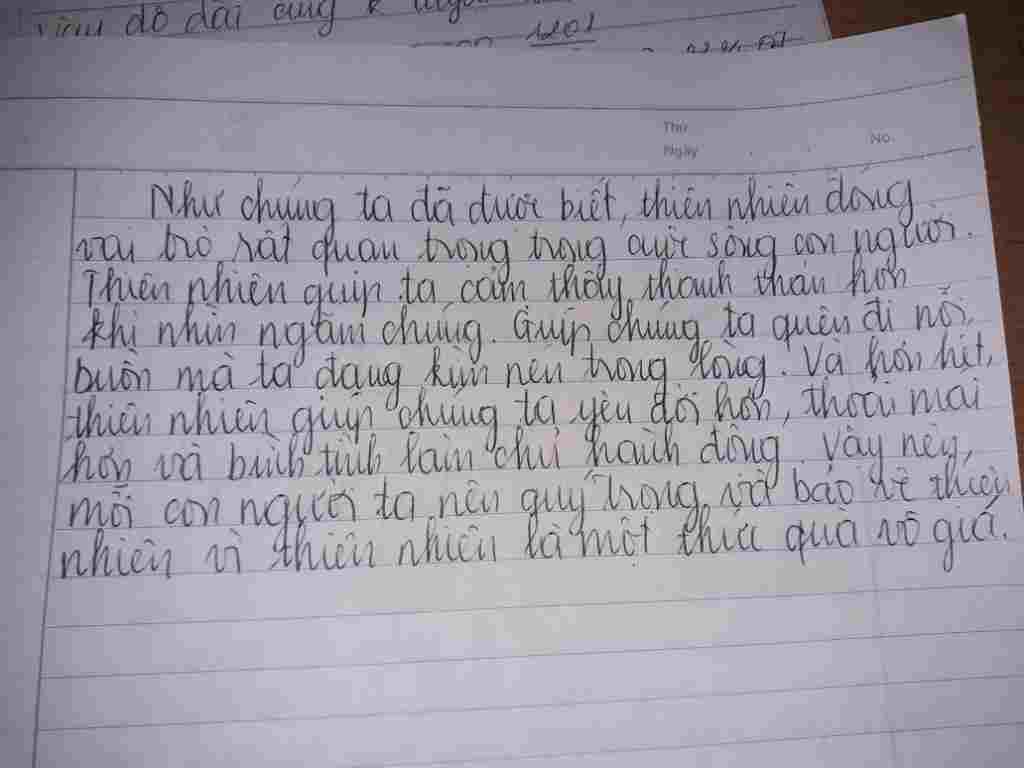 viên đô dài cung
1201
Thứ
Ngày
No.
Như chúng ta đã được biết, thiên nhiên đóng
vai trò rất quan trọng trong cuộc sống con người.
Thiên nhiên giúp ta cảm thấy thanh thản hơn
khi nhìn ngắm chúng. Giúp chúng ta quên đi nỗi
buồn mà ta đang kìm nén trong lòng. Và hơn hết,
thiên nhiên giúp chúng ta yêu đời hơn, thoải mái
hơn và bình tĩnh làm chủ hành động. Vậy nên,
mỗi con người ta nên quý trọng và bảo vệ thiên
nhiên vì thiên nhiên là một thức quà vô giá.